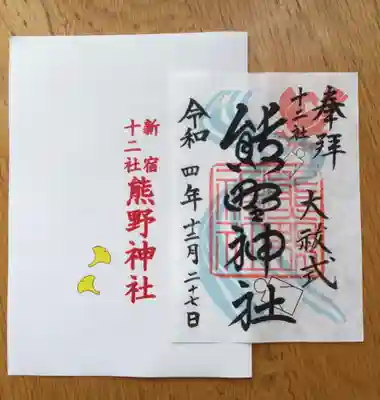 奉拝
大祓式
十二社
熊野神社
令和四年十二月二十七日
新宿
十二社
熊野神社